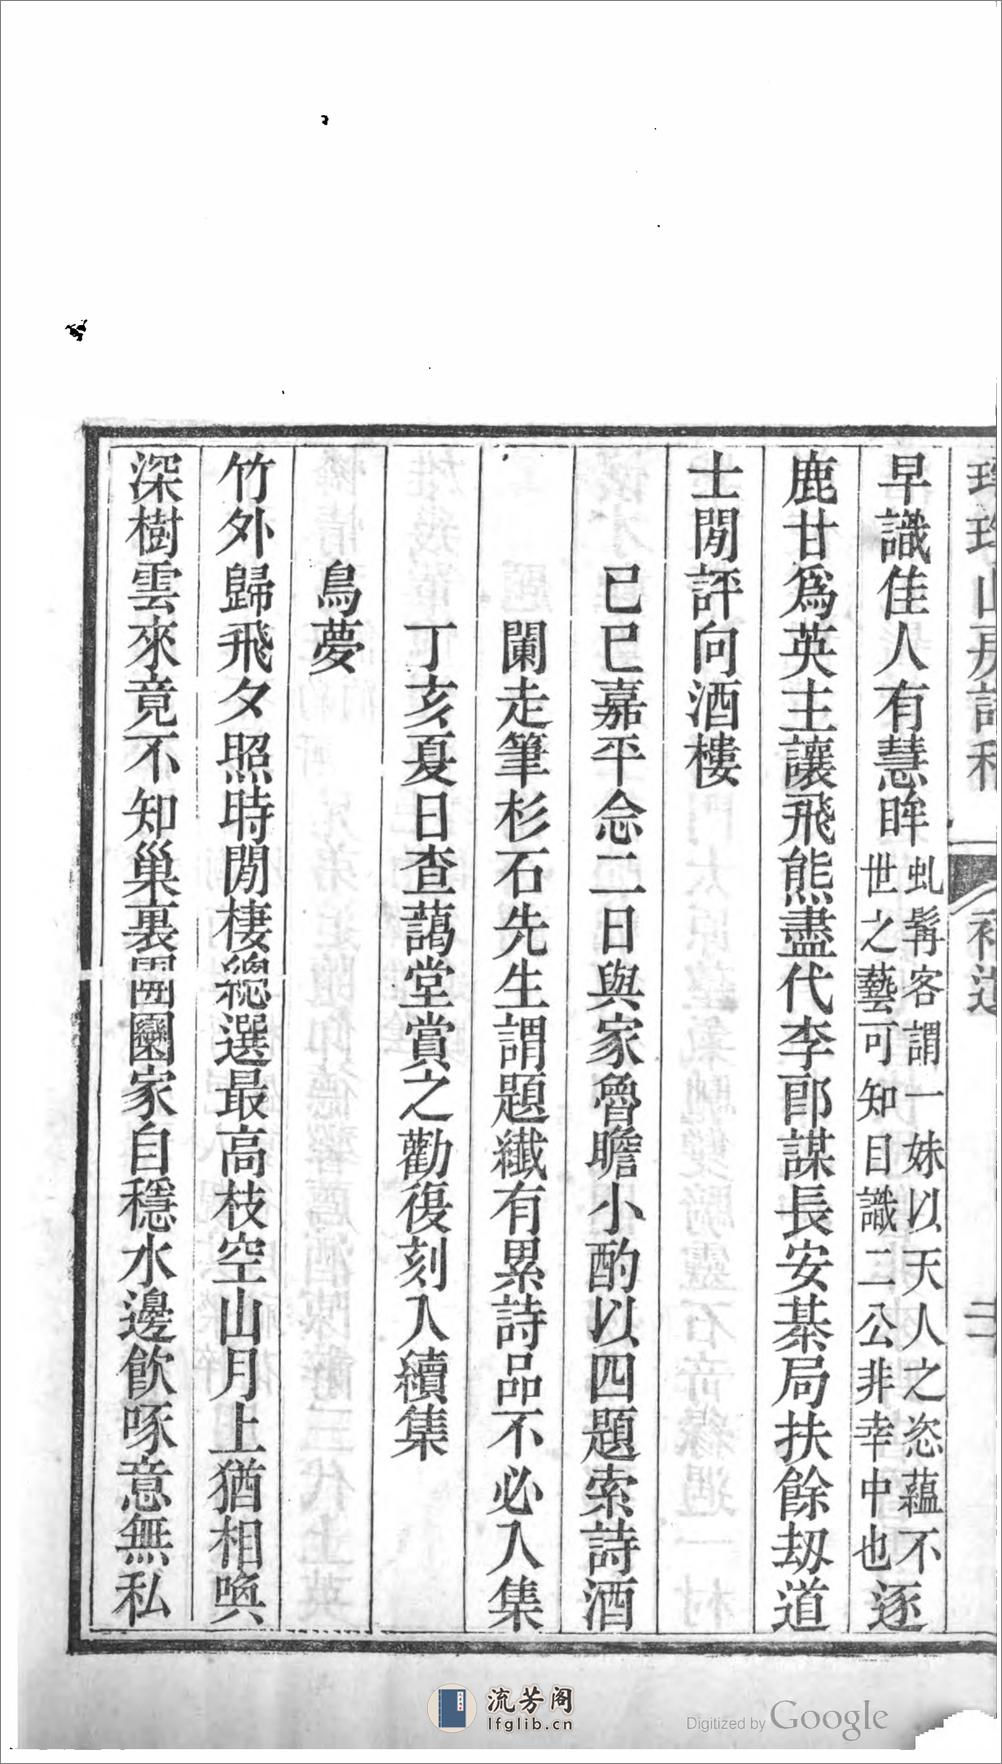 早識佳人有慧眸虬髯客謂一妹以天人之恣蘊不世之藝可知目識二公非幸中也逐
鹿甘為英主讓飛熊盡代李郎謀長安棊局扶餘刼道
士閒評向酒樓
己巳嘉平念二日與家魯瞻小酌以四題索詩酒
闌走筆杉石先生謂題纖有累詩品不必入集
丁亥夏日查藹堂賞之勸復刻入續集
鳥夢
竹外歸飛夕照時閒棲總選最高枝空山月上猶相喚
深樹雲來竟不知巢裏團圞家自穩水邊飲啄意無私
流芳阁
lfglib.cn
Digitized by Google